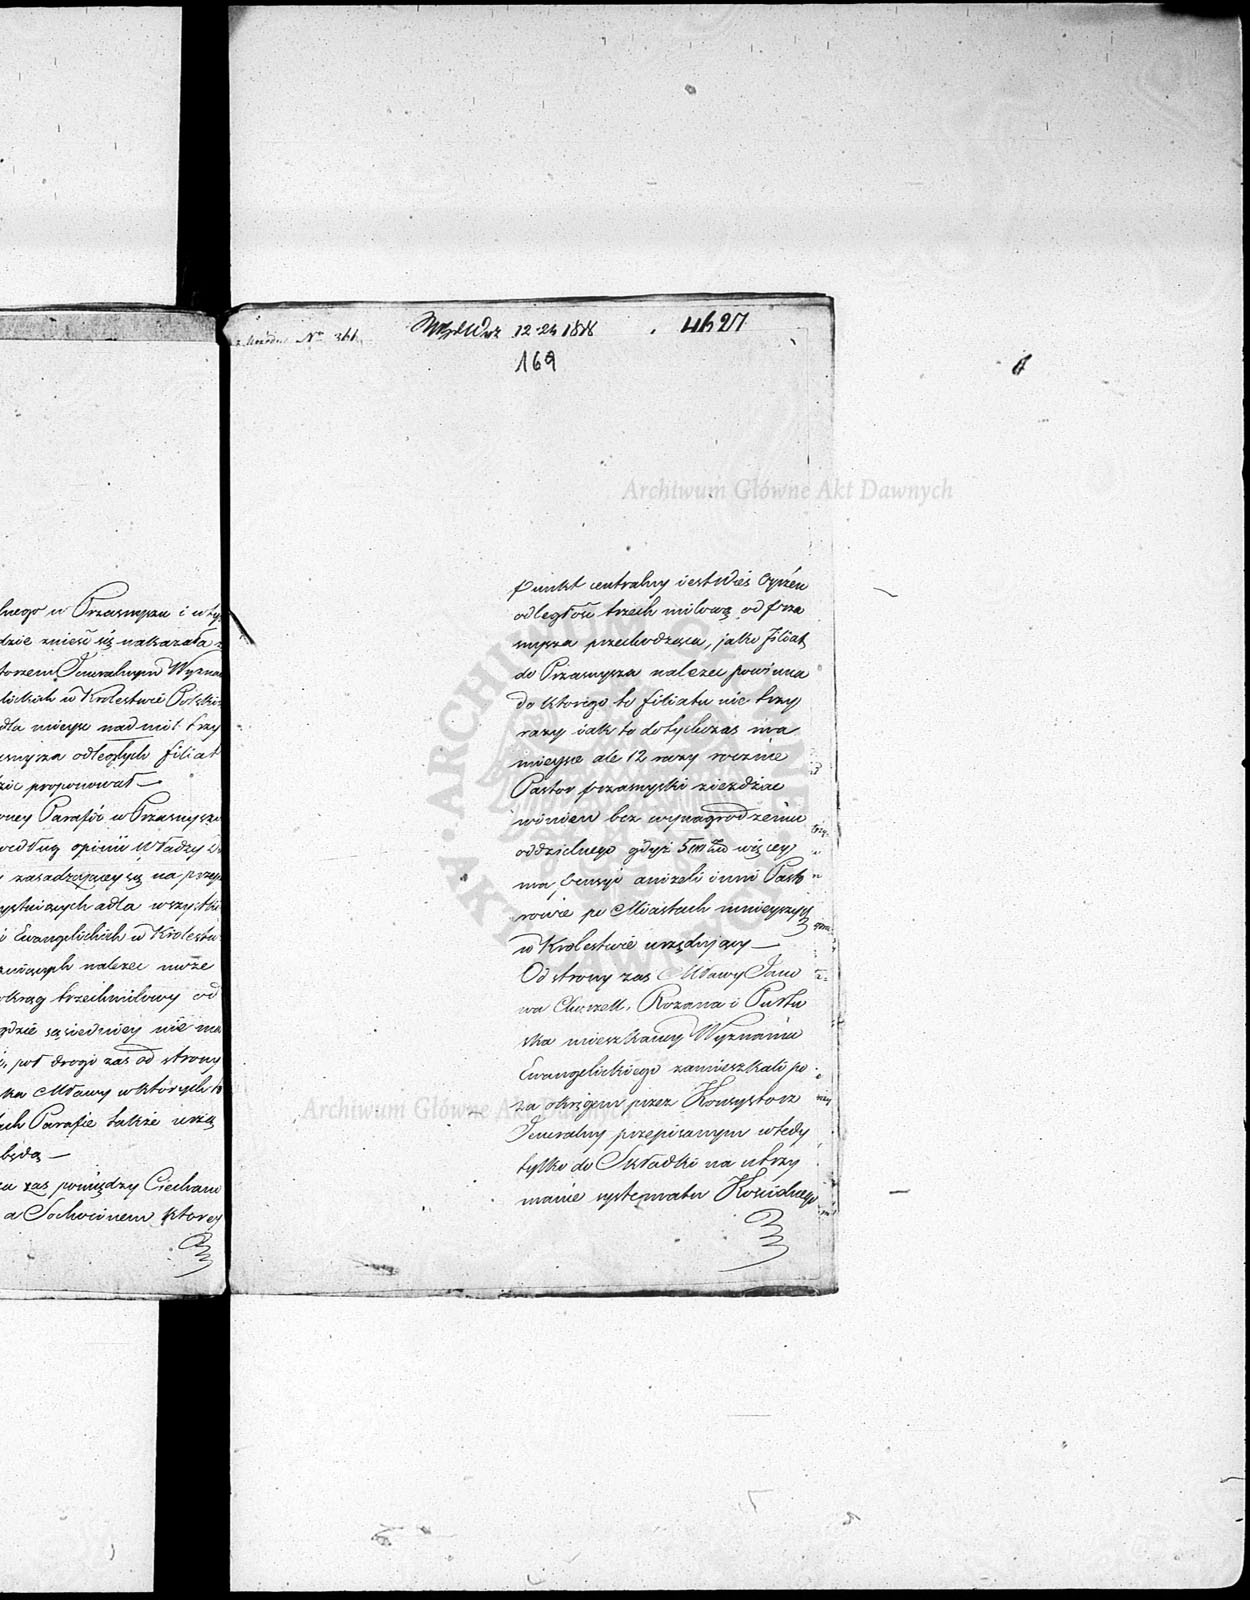 lnego w Przasnyszu i w ty
dzie znieść się nakazała z
torzem Jeneralnym Wyzna
lickich w Królestwie Polski
dla mieysc nad mil trzy
asnysza odległych filiał
zic proponował —
ney Parafii w Przasnyszu
według opinii Władzy
zasadzaiącey się na przy
adla wszystki
i Ewangelickich w Królestw
należeć może
okrąg trzechmilowy od
gdzie sąsiedniey nie ma
, pół drogi zas od strony
ka Mławy w których
ch Parafie także urzą
będą —
zas pomiędzy Ciechano
a Sochocinem ktorey
No 366
12-24 1818
4627
169
Punkt centralny iest Wieś Opizen
odległość trzech milową od Prza
snysza przechodząca, jako Filiał
do Przasnysza należeć powinna
do ktorego to filiału nie trzy
razy iak to dotychczas ma
mieysce ale 12 razy rocznie
Pastor przasnyski ziezdżac
winien bez wynagrodzenia
oddzielnego gdyż więcey
ma pensyi aniżeli inni Pasto
rowie po Miastach mnieyszych
w Krolestwie urzęduiący —
Od strony zas Mławy Jano
wa Chorzell, Rozana i Pułtu
ska mieszkancy Wyznania
Ewangelickiego zamieszkali po
za okręgem przez Konsystorz
Jeneralny przepisanym wtedy
tylko do Składki na utrzy
manie systematu Kościelnego
Archiwum Główne Akt Dawnych
Archiwum Główne Akt Dawnych
ARCHIWUM GŁÓWNE AKT DAWNYCH